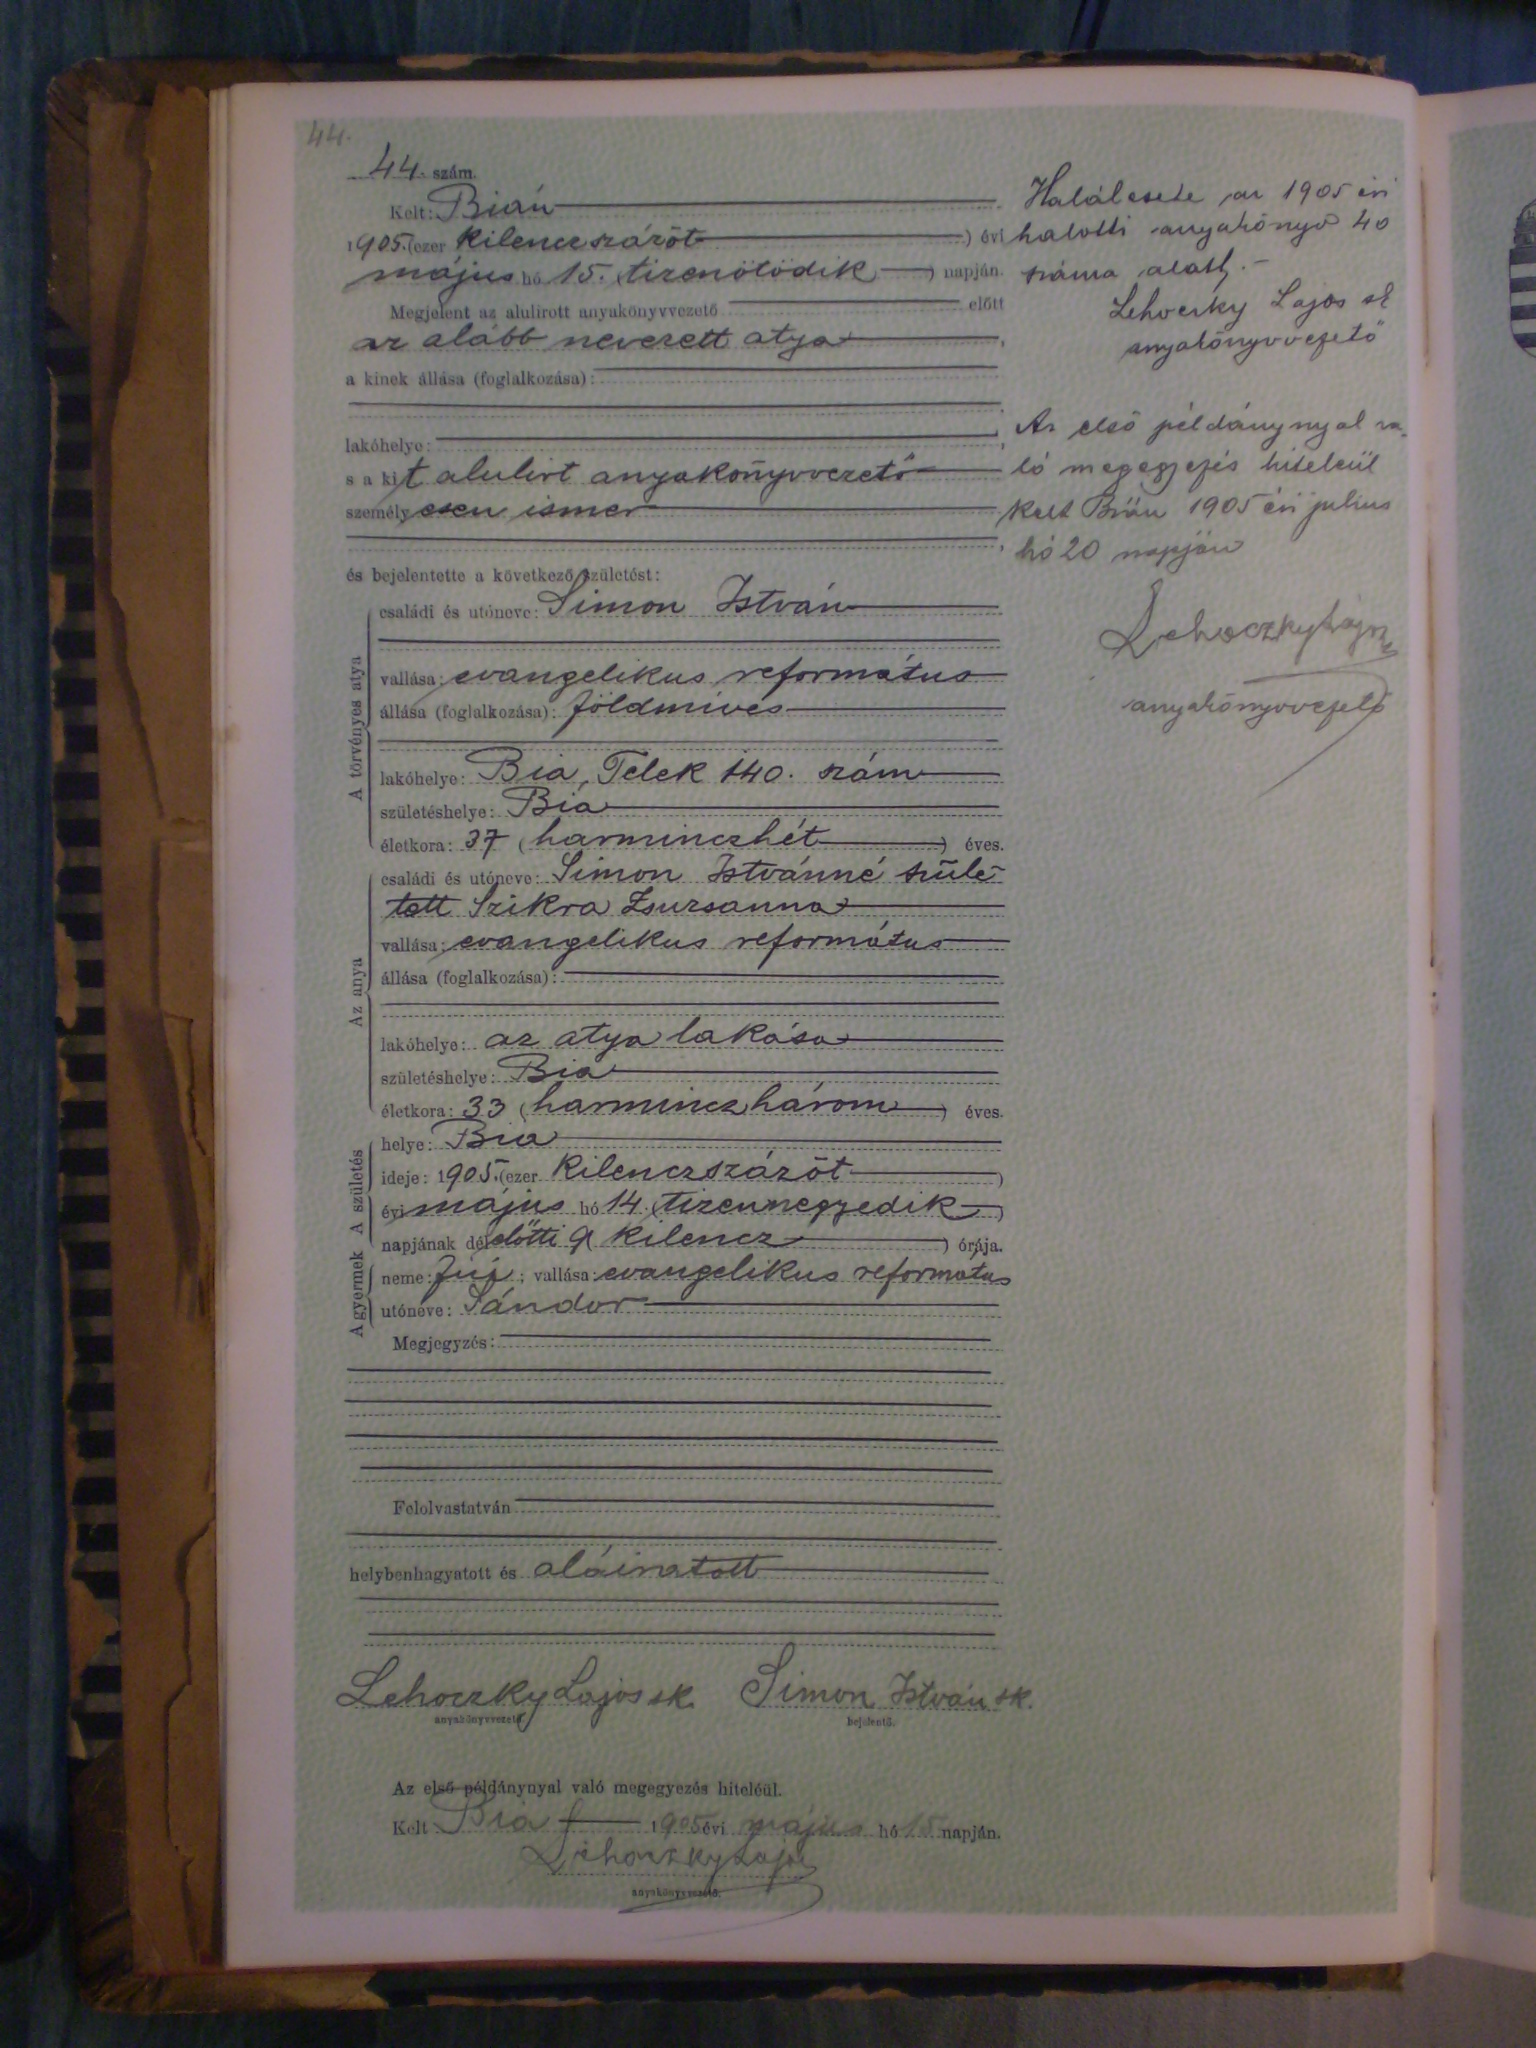 44.
44. szám.
Kelt: Bián
1905. (ezer kilenczszázöt) évi
május hó 15. (tizenötödik) napján.
Megjelent az alulirott anyakönyvvezető előtt
az alább nevezett atya
a kinek állása (foglalkozása):
lakóhelye:
s a kit alulirt anyakönyvvezető
személyesen ismer
és bejelentette a következő születést:
A törvényes atya
családi és utóneve: Simon István
vallása: evangelikus református
állása (foglalkozása): földmives
lakóhelye: Bia, Telek 140. szám
születéshelye: Bia
életkora: 37 (harminczhét) éves.
Az anya
családi és utóneve: Simon Istvánné szüle-
tett Szikra Zsuzsanna
vallása: evangelikus református
állása (foglalkozása):
lakóhelye: az atya lakása
születéshelye: Bia
életkora: 33 (harminczhárom) éves.
A születés
helye: Bia
ideje: 1905. (ezer kilenczszázöt)
évi május hó 14. (tizennegyedik)
napjának délelőtti 9 (kilencz) órája.
A gyermek
neme: fiú; vallása: evangelikus református
utóneve: Sándor
Megjegyzés:
Felolvastatván
helybenhagyatott és aláiratott
Lehoczky Lajos sk. Simon István sk.
anyakönyvvezető. bejelentő.
Az első példánynyal való megegyezés hiteléül.
Kelt Bia 1905 évi május hó 15 napján.
Lehoczky Lajos
anyakönyvvezető.
Halálesete az 1905 évi
halotti anyakönyv 40
száma alatt.-
Lehoczky Lajos sk
anyakönyvvezető
Az első példánynyal va-
ló megegyezés hiteleül
Kelt Bián 1905 évi julius
hó 20 napján
Lehoczky Lajos
anyakönyvvezető